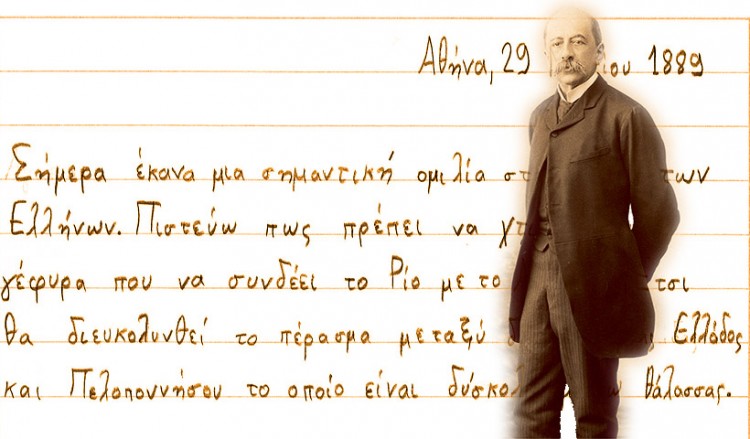 Αθήνα, 29 ου 1889
Σήμερα έκανα μια σημαντική ομιλία στ των
Ελλήνων. Πιστεύω πως πρέπει να χτ
γέφυρα που να συνδέει το Ρίο με το τσι
θα διευκολυνθεί το πέρασμα μεταξύ Ελλάδος
και Πελοποννήσου το οποίο είναι δύσκολ θάλασσας.